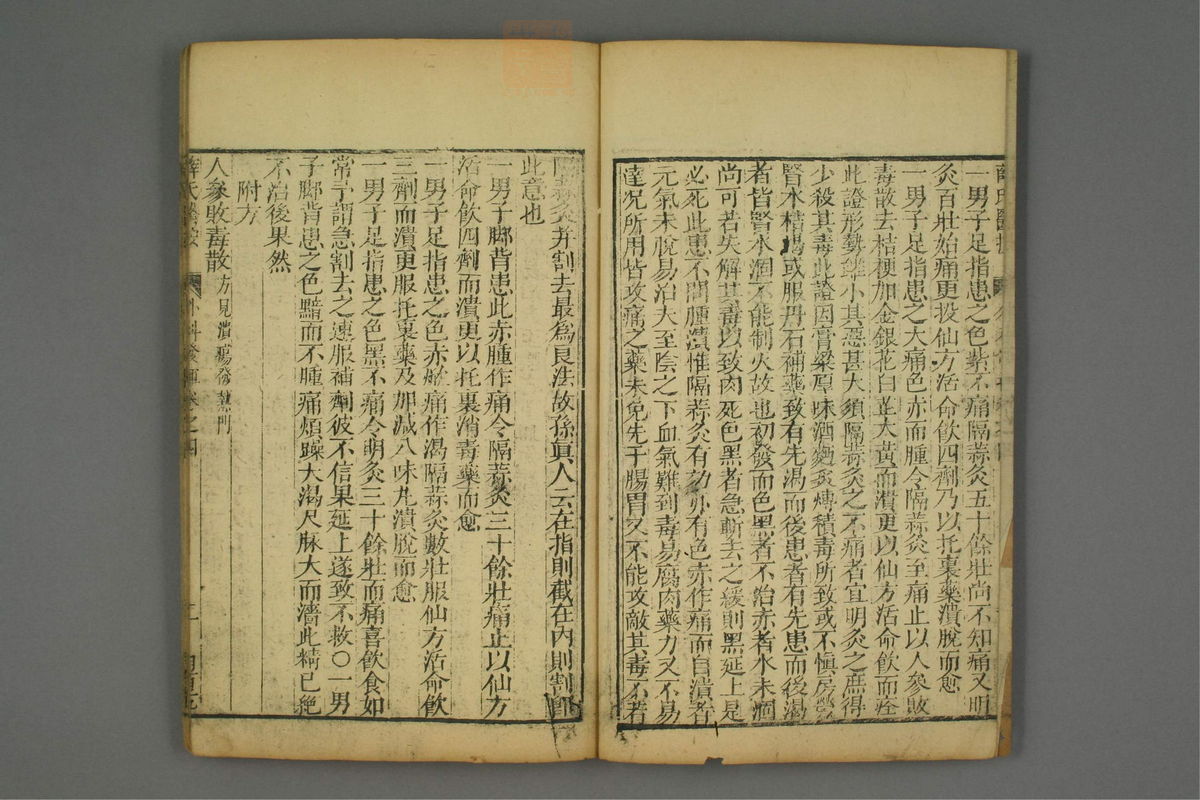 一男子足指患之色紫不痛隔蒜灸五十餘壯尚不知痛又明
灸百壯始痛更投仙方活命飲四劑乃以托裏藥潰脫而愈
一男子足指患之大痛色赤而腫令隔蒜灸至痛止以人參敗
毒散去桔梗加金銀花白芷大黃而潰更以仙方活命飲而痊
此證形勢雖小其惡甚大須隔蒜灸之不痛者宜明灸之庶得
少殺其毒此證因膏粱厚味酒麪炙煿積毒所致或不慎房勞
腎水枯竭或服丹石補藥致有先渴而後患者有先患而後渴
者皆腎水涸不能制火故也初發而色黑者不治赤者水未涸
尚可若失解其毒以致肉死色黑者急斬去之緩則黑延上是
必死此患不問腫潰惟隔蒜灸有效亦有色赤作痛而自潰者
元氣未脫易治夫至陰之下血氣難到毒易腐肉藥力又不易
達況所用皆攻痛之藥未免先干腸胃又不能攻敵其毒不若
隔蒜灸并割去最為良法故孫真人云在指則截在內則割即
此意也
一男子脚背患此赤腫作痛令隔蒜灸三十餘壯痛止以仙方
活命飲四劑而潰更以托裏消毒藥而愈
一男子足指患之色赤焮痛作渴隔蒜灸數壯服仙方活命飲
三劑而潰更服托裏藥及加減八味丸潰脫而愈
一男子足指患之色黑不痛令明灸三十餘壯而痛喜飲食如
常予謂急割去之速服補劑彼不信果延上遂致不救〇一男
子脚背患之色黯而不腫痛煩躁大渴尺脉大而濇此精已絕
不治後果然
附方
人參敗毒散方見潰瘍發熱門
薛氏醫按 外科發揮卷之四